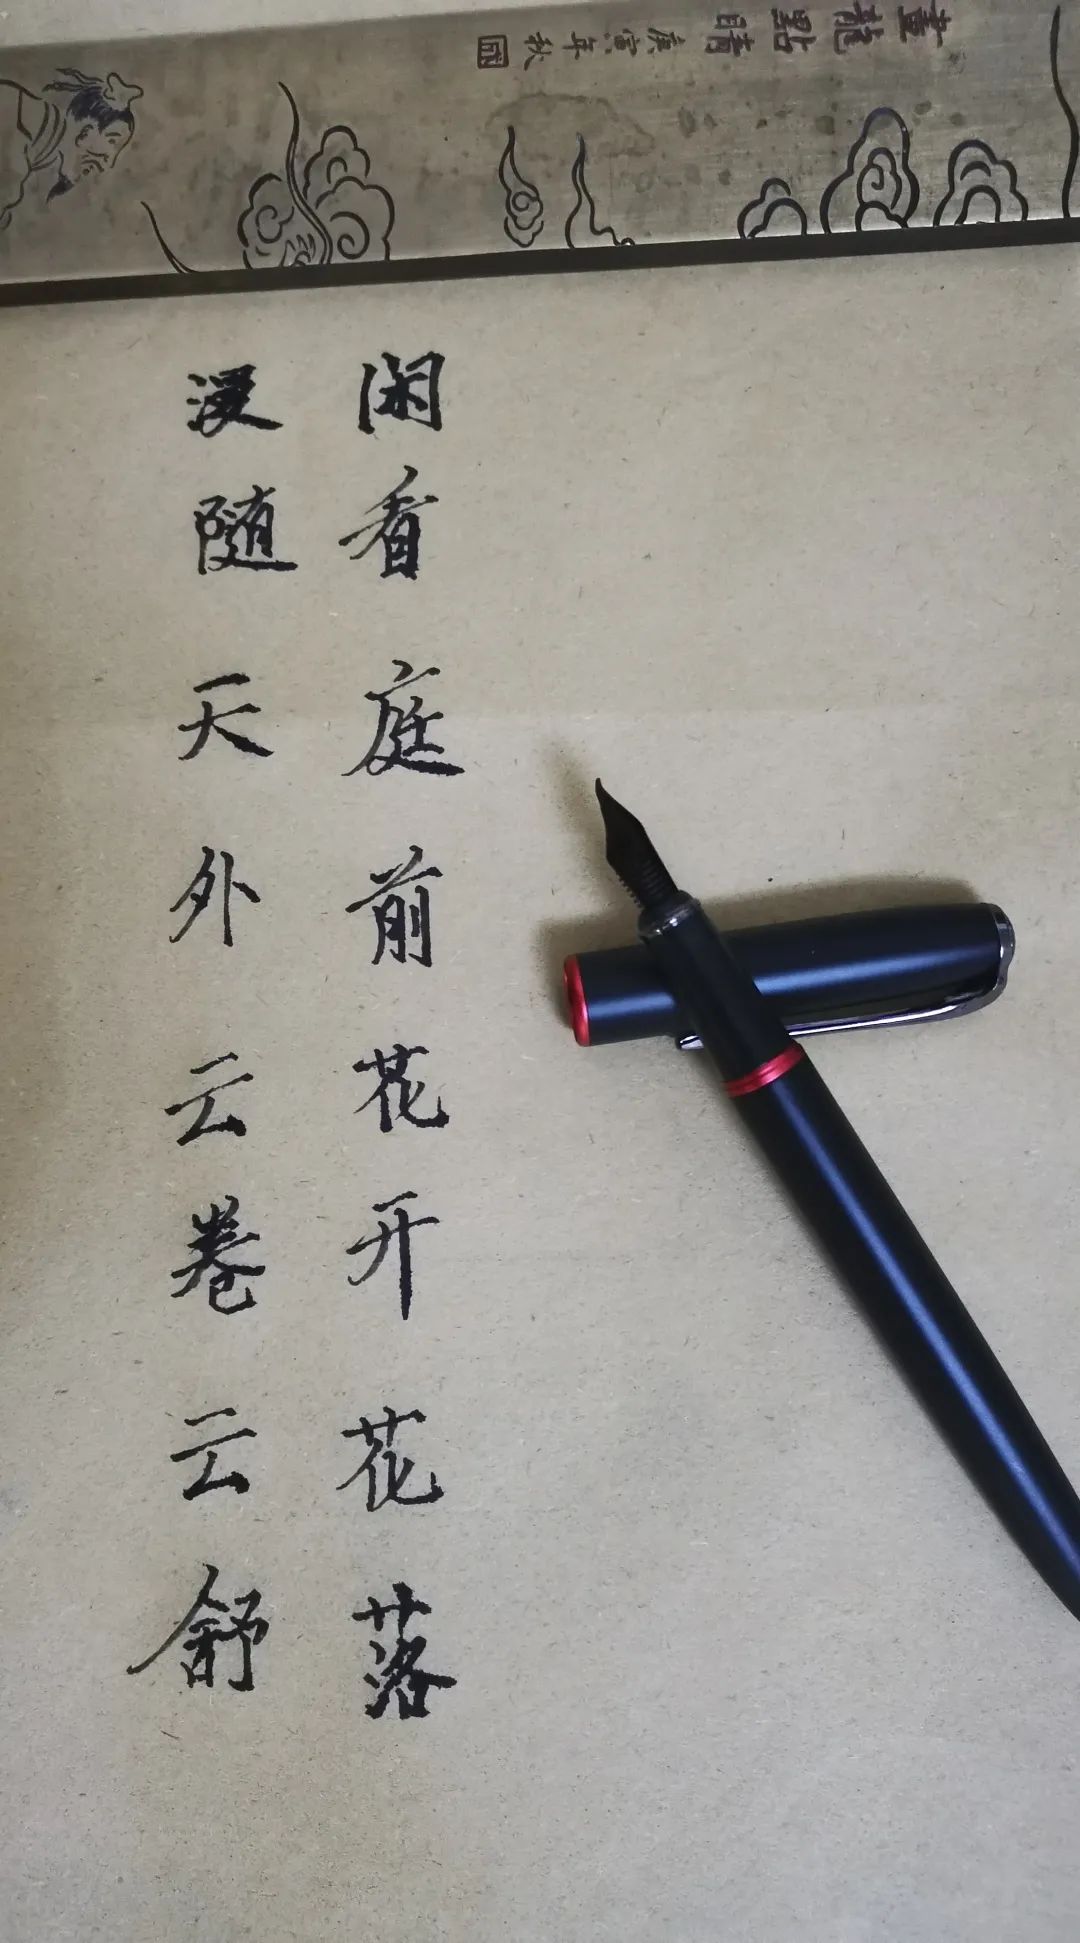 畫龍點睛
庚寅年秋
闲看庭前花开花落
漫随天外云卷云舒